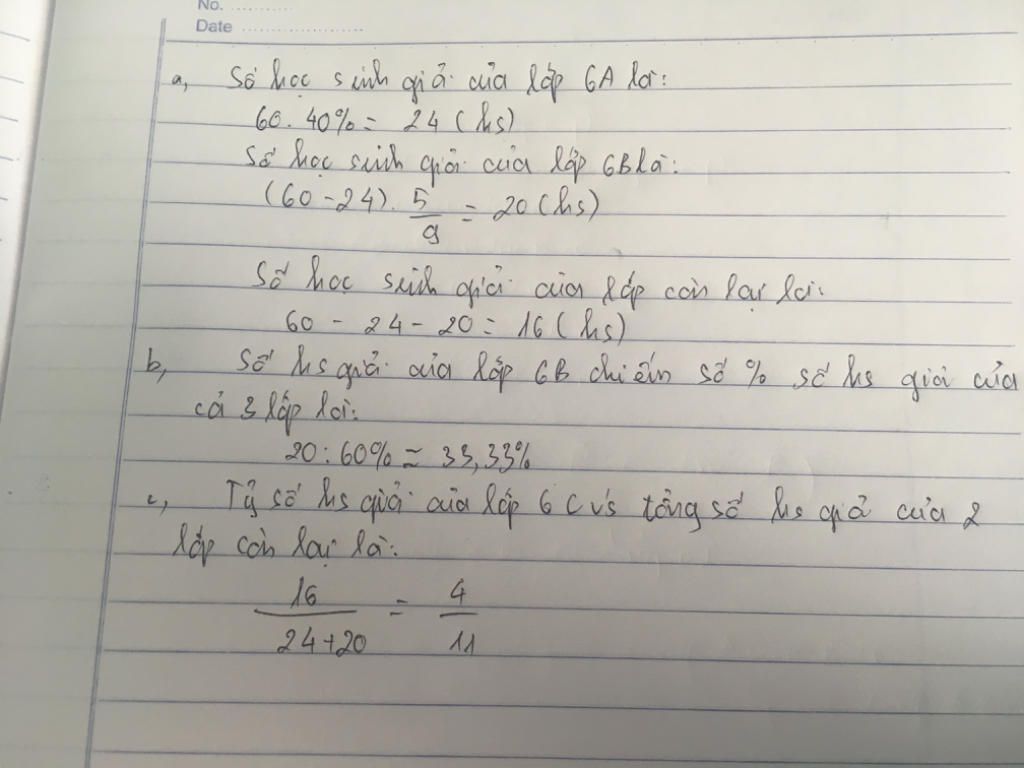 No. ..........
Date ......................
a, Số học sinh giỏi của lớp 6A là:
60. 40% = 24 (hs)
Số học sinh giỏi của lớp 6B là:
(60 - 24). 5/9 = 20 (hs)
Số học sinh giỏi của lớp còn lại là:
60 - 24 - 20 = 16 (hs)
b, Số hs giỏi của lớp 6B chiếm số % số hs giỏi của
cả 3 lớp là:
20 : 60% = 33,33%
c, Tỷ số hs giỏi của lớp 6C vs tổng số hs giỏi của 2
lớp còn lại là:
16/(24+20) = 4/11